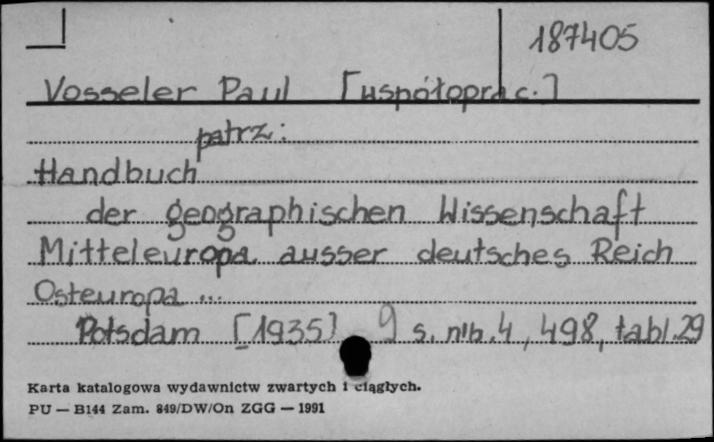 187405
Vosseler Paul [współoprac.]
patrz:
Handbuch
der geographischen Wissenschaft
Mitteleuropa ausser deutsches Reich
Osteuropa ...
Potsdam [1935] 9 s. nlb. 4, 498, tabl. 29
Karta katalogowa wydawnictw zwartych i ciągłych.
PU — B144 Zam. 849/DW/On ZGG — 1991